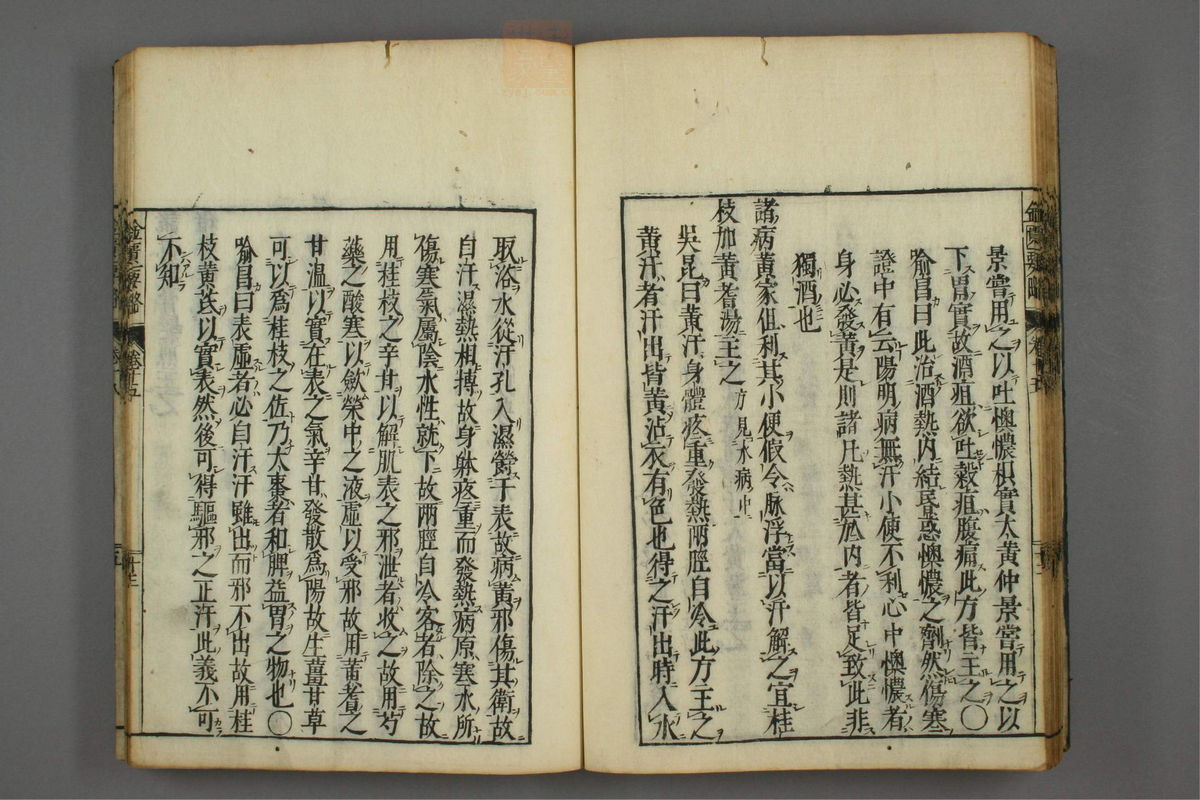 景嘗用之以吐懊憹枳實大黃仲景嘗用之以
下胃實故酒疸欲吐穀疸腹痛此方皆主之○
喻昌曰此治酒熱內結昏惑懊憹之劑然傷寒
證中有云陽明病無汗小便不利心中懊憹者
身必發黃是則諸凡熱甚於內者皆足致此非
獨酒也
諸病黃家但利其小便假令脉浮當以汗解之宜桂
枝加黃耆湯主之方見水病中
吳昆曰黃汗身體疼重發熱兩脛自冷此方主之
黃汗者汗出皆黃沾衣有色也得之汗出時入水
取浴水從汗孔入濕欝于表故病黃邪傷其衛故
自汗濕熱相搏故身躰疼重而發熱病原寒水所
傷寒氣屬陰水性就下故兩脛自冷客者除之故
用桂枝之辛甘以解肌表之邪泄者收之故用芍
藥之酸寒以斂榮中之液虛以受邪故用黃耆之
甘溫以實在表之氣辛甘發散為陽故生薑甘草
可以為桂枝之佐乃大棗者和脾益胃之物也○
喻昌曰表虛者必自汗汗雖出而邪不出故用桂
枝黃芪以實表然後可得驅邪之正汗此義不可
不知